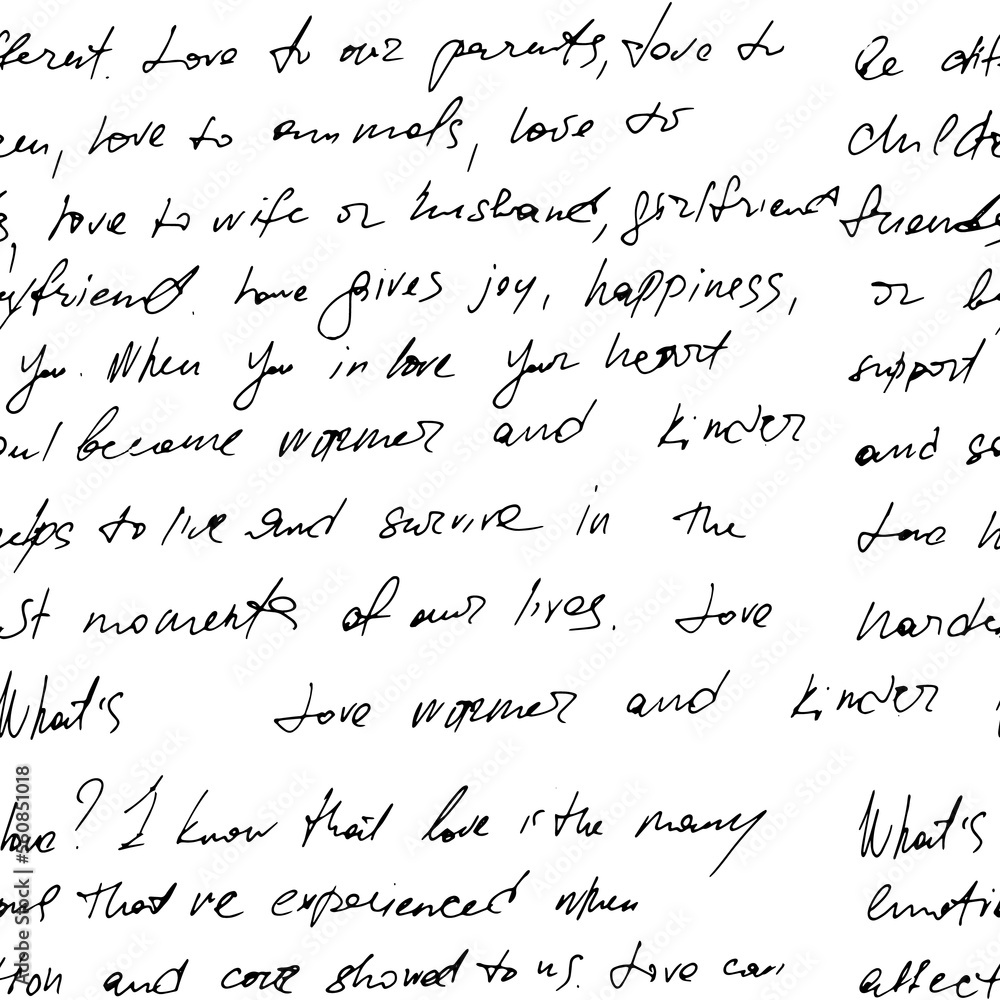 fferent. Love to our parents, love to Be diff
ren, love to animals, love to childre
s, love to wife or husband, girlfriend friends
oyfriend. Love gives joy, happiness, or bo
you. When you in love your heart support
oul become warmer and kinder and so
elps to live and survive in the Love h
st moments of our lives. Love harde
What's Love warmer and kinder
love? I know that love is the many What's
ons that we experienced when emotio
tion and care showed to us. Love can affect
Adobe Stock | #560851018